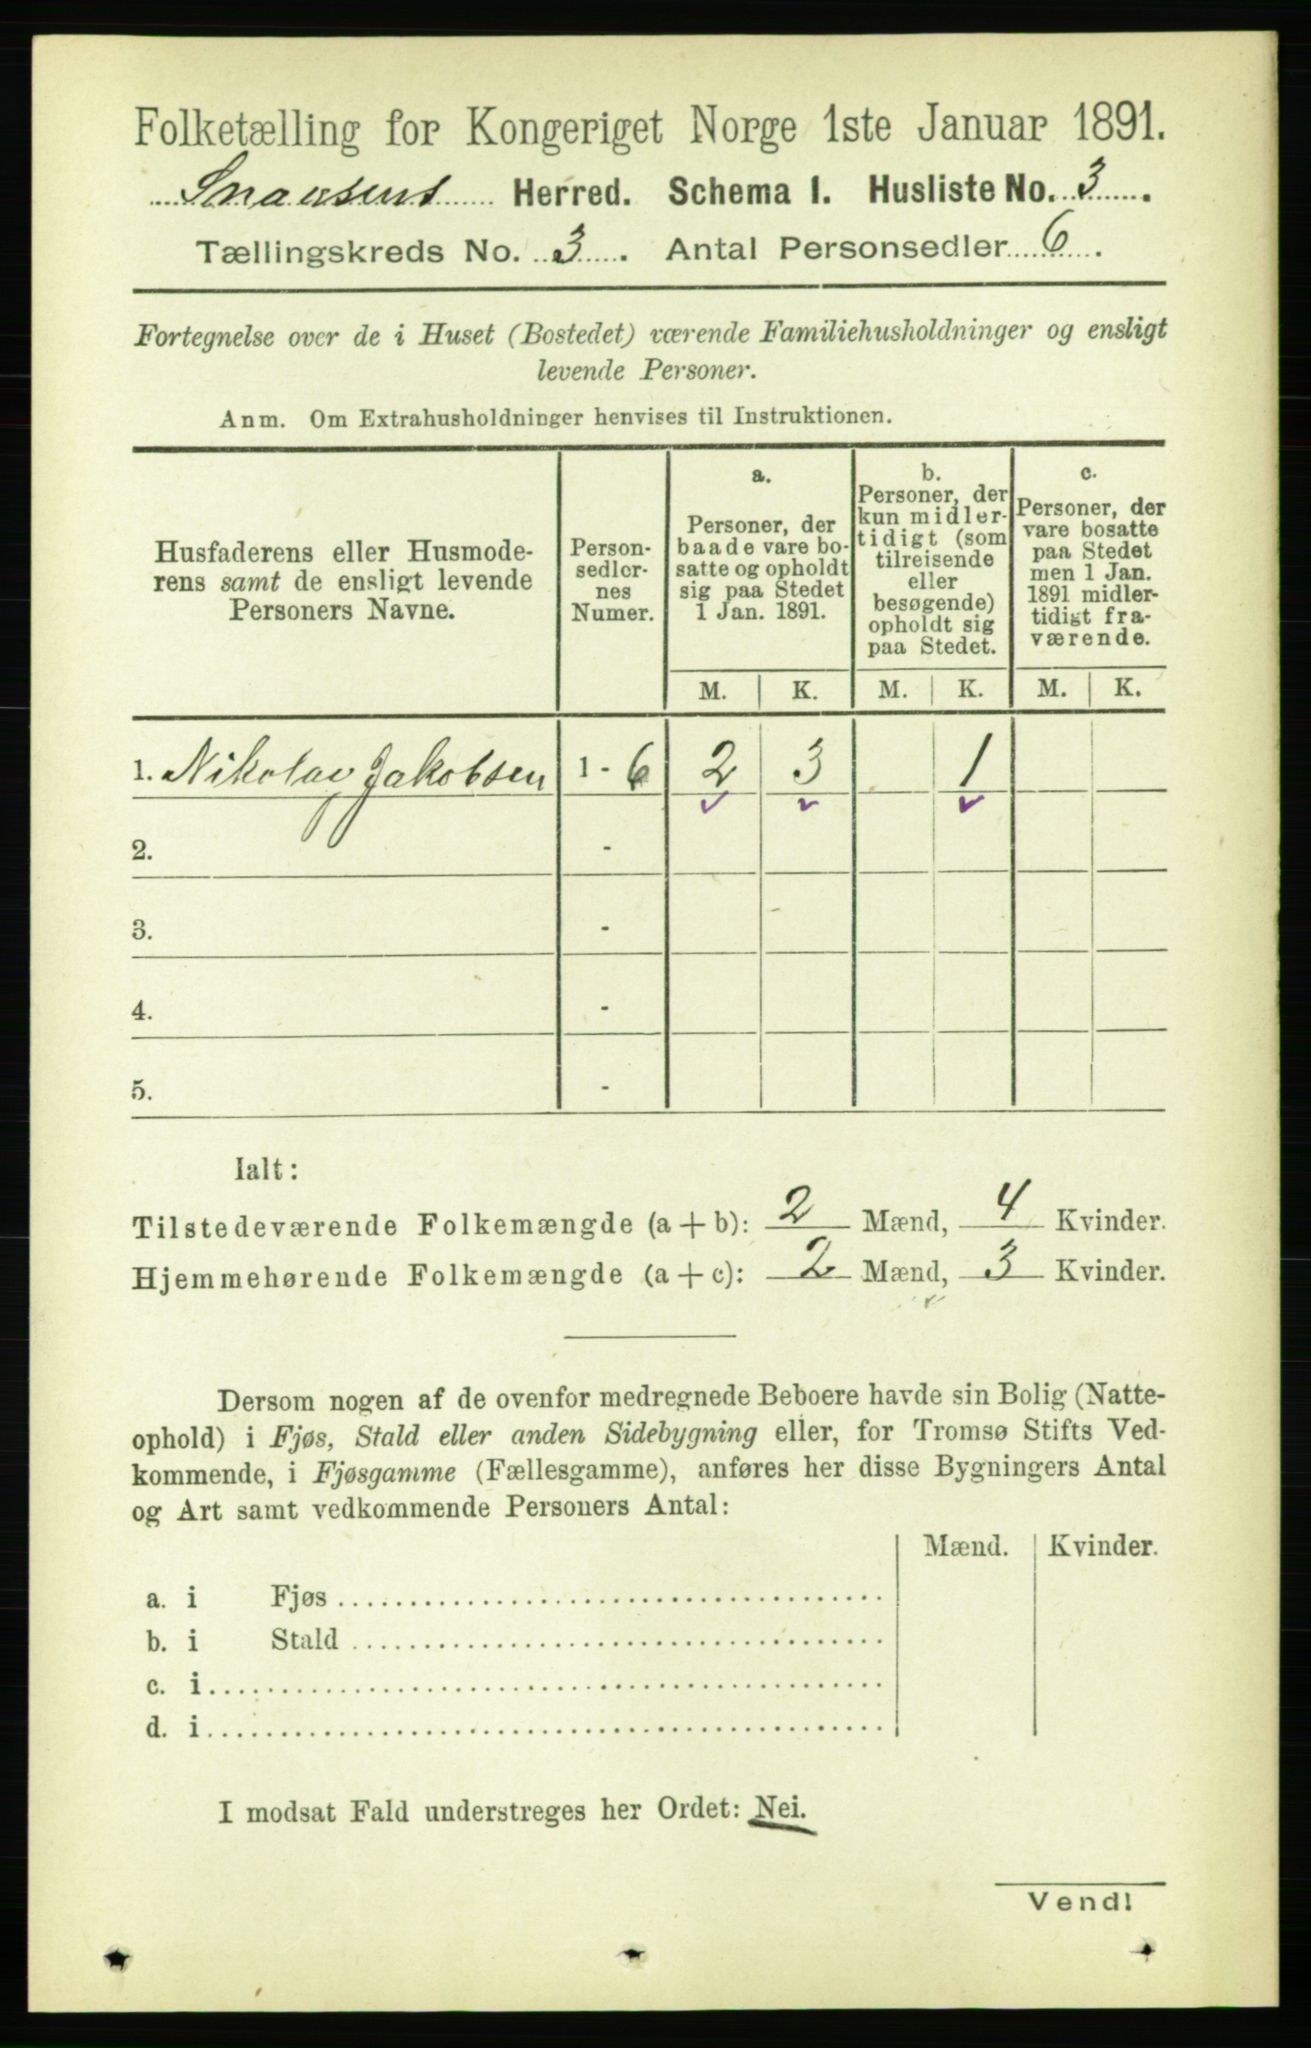 Folketælling for Kongeriget Norge 1ste Januar 1891.
Snaasens Herred. Schema I. Husliste No. 3.
Tællingskreds No. 3. Antal Personsedler 6.
Fortegnelse over de i Huset (Bostedet) værende Familiehusholdninger og ensligt
levende Personer.
Anm. Om Extrahusholdninger henvises til Instruktionen.
Husfaderens eller Husmode-
rens samt de ensligt levende
Personers Navne.
Person-
sedler-
nes
Numer.
a.
Personer, der
baade vare bo-
satte og opholdt
sig paa Stedet
1 Jan. 1891.
b.
Personer, der
kun midler-
tidigt (som
tilreisende
eller
besøgende)
opholdt sig
paa Stedet.
c.
Personer, der
vare bosatte
paa Stedet
men 1 Jan.
1891 midler-
tidigt fra-
værende.
M. K. M. K. M. K.
1. Nikolav Jakobsen 1 - 6 2 3 1
2. -
3. -
4. -
5. -
Ialt:
Tilstedeværende Folkemængde (a + b): 2 Mænd, 4 Kvinder.
Hjemmehørende Folkemængde (a + c): 2 Mænd, 3 Kvinder.
Dersom nogen af de ovenfor medregnede Beboere havde sin Bolig (Natte-
ophold) i Fjøs, Stald eller anden Sidebygning eller, for Tromsø Stifts Ved-
kommende, i Fjøsgamme (Fællesgamme), anføres her disse Bygningers Antal
og Art samt vedkommende Personers Antal:
Mænd. Kvinder.
a. i Fjøs
b. i Stald
c. i
d. i
I modsat Fald understreges her Ordet: Nei.
Vend!